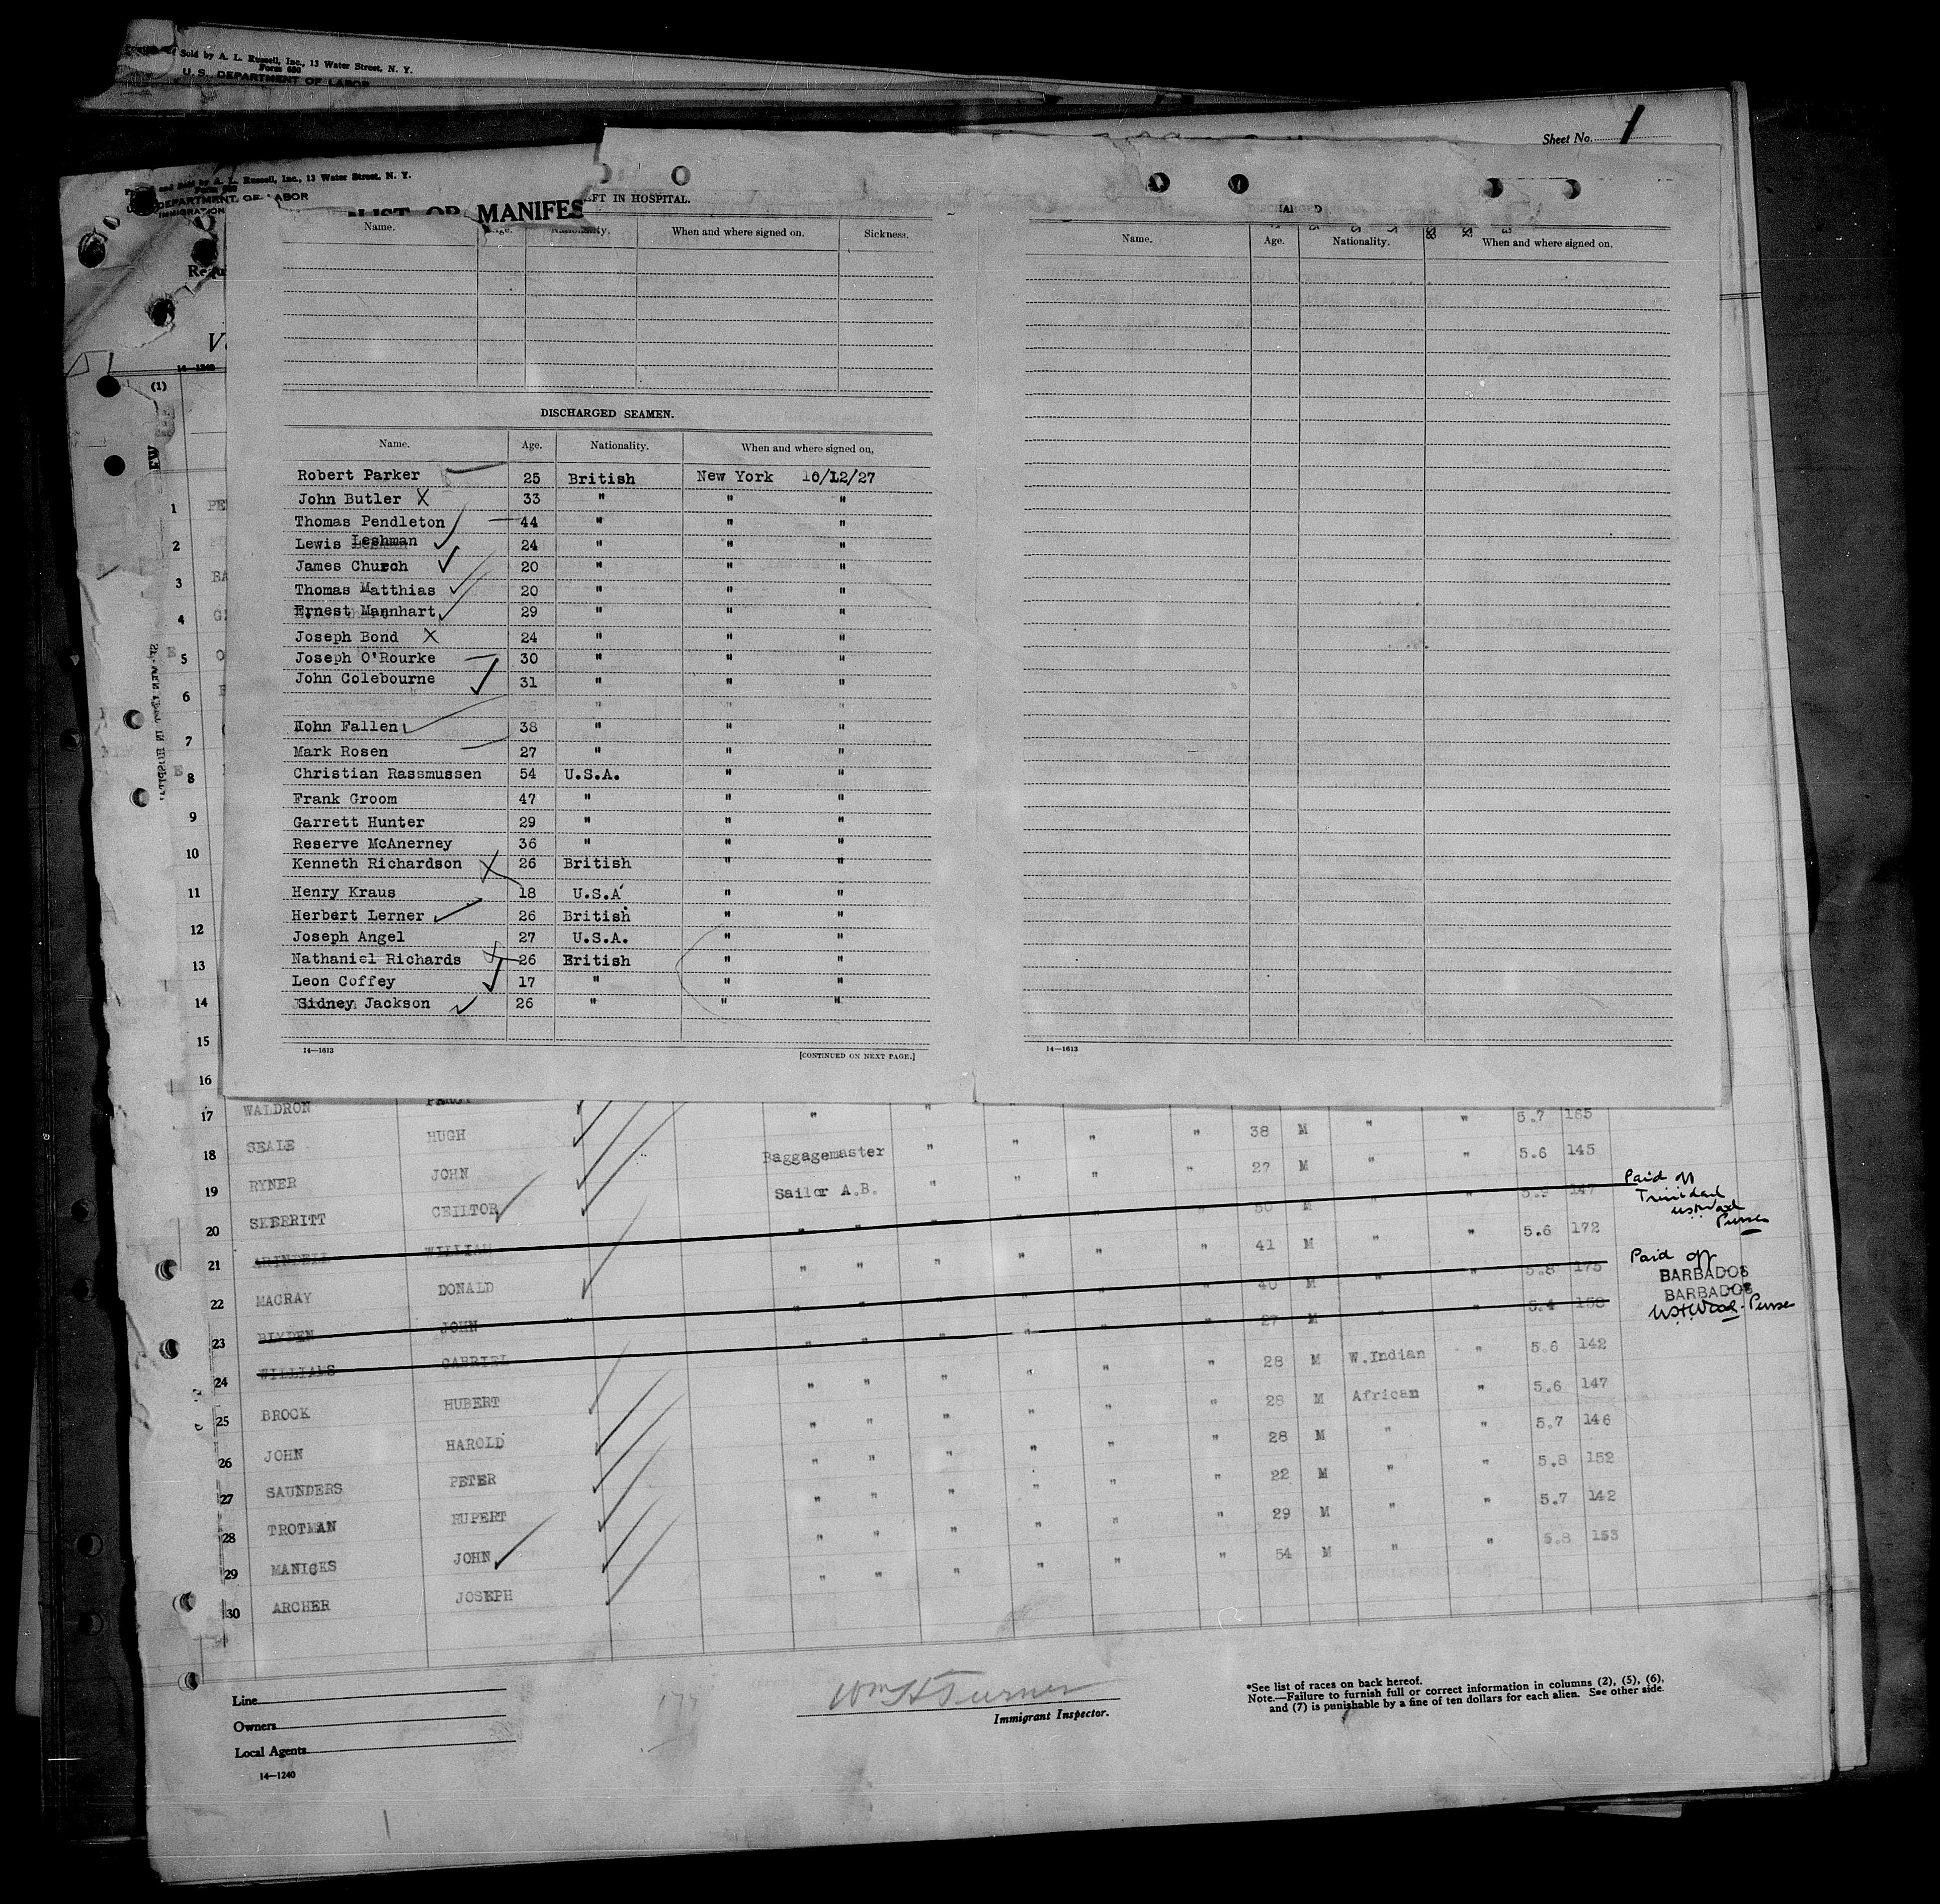 Sold by A. L. Russell, Inc., 13 Water Street, N. Y.
Form 680
U. S. DEPARTMENT OF LABOR
Sheet No. 1
and Sold by A. L. Russell, Inc., 13 Water Street, N. Y.
DEPARTMENT OF LABOR
IMMIGRATION
LIST OR MANIFES
FT IN HOSPITAL.
Name. Age. Nationality. When and where signed on. Sickness.
Name. Age. Nationality. When and where signed on.
14—1240
(1)
DISCHARGED SEAMEN.
Name. Age. Nationality. When and where signed on.
Robert Parker 25 British New York 16/12/27
John Butler X 33 " " "
Thomas Pendleton 44 " " "
Lewis Leshman 24 " " "
James Church 20 " " "
Thomas Matthias 20 " " "
Ernest Mannhart 29 " " "
Joseph Bond X 24 " " "
Joseph O'Rourke 30 " " "
John Colebourne 31 " " "
" " "
Hohn Fallen 38 " " "
Mark Rosen 27 " " "
Christian Rassmussen 54 U.S.A. " "
Frank Groom 47 " " "
Garrett Hunter 29 " " "
Reserve McAnerney 36 " " "
Kenneth Richardson X 26 British " "
Henry Kraus 18 U.S.A " "
Herbert Lerner 26 British " "
Joseph Angel 27 U.S.A. " "
Nathaniel Richards X 26 British " "
Leon Coffey 17 " " "
Sidney Jackson 26 " " "
14—1613 [CONTINUED ON NEXT PAGE.]
14—1613
1
2
3
4
5
6
7
8
9
10
11
12
13
14
15
16
17 WALDRON PERCY " " " " " 5.7 165
18 SEALE HUGH " " " " 38 M " " 5.6 145
19 RYNER JOHN Baggagemaster " " " " 27 M " " 5.9 147
20 SKERRITT CEILTOR Sailor A.B. " " " " 50 M " " 5.6 172
Paid off
Trinidad
Purser
21 ARINDELL WILLIAM " " " " " " 41 M " " 5.8 175
22 MACRAY DONALD " " " " " " 40 M " " 5.4 158
Paid off
BARBADOS
BARBADOS
Purser
23 BLYDEN JOHN " " " " " " 27 M " "
24 WILLIAMS GABRIEL " " " " " " 28 M W.Indian " 5.6 142
25 BROCK HUBERT " " " " " " 28 M African " 5.6 147
26 JOHN HAROLD " " " " " " 28 M " " 5.7 146
27 SAUNDERS PETER " " " " " " 22 M " " 5.8 152
28 TROTMAN RUPERT " " " " " " 29 M " " 5.7 142
29 MANICKS JOHN " " " " " " 54 M " " 5.8 153
30 ARCHER JOSEPH " " " " "
Line
Owners
Local Agents
14—1240
Wm H Turner
Immigrant Inspector.
*See list of races on back hereof.
Note.—Failure to furnish full or correct information in columns (2), (5), (6),
and (7) is punishable by a fine of ten dollars for each alien. See other side.